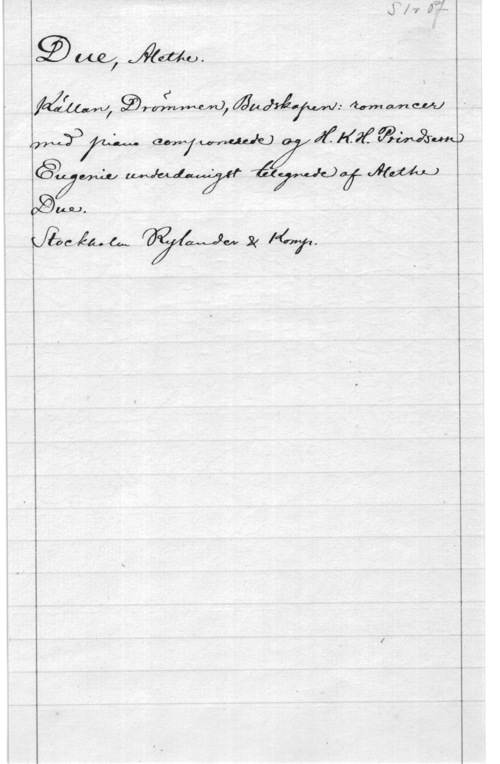 Due, Alethe.
Källan, Drömmen, Budskapen: romancer
med piano componerede og H. K. H. Prindsesse
Eugenie underdanigst tilegnede af Alethe
Due.
Stockholm Rylander & Komp.